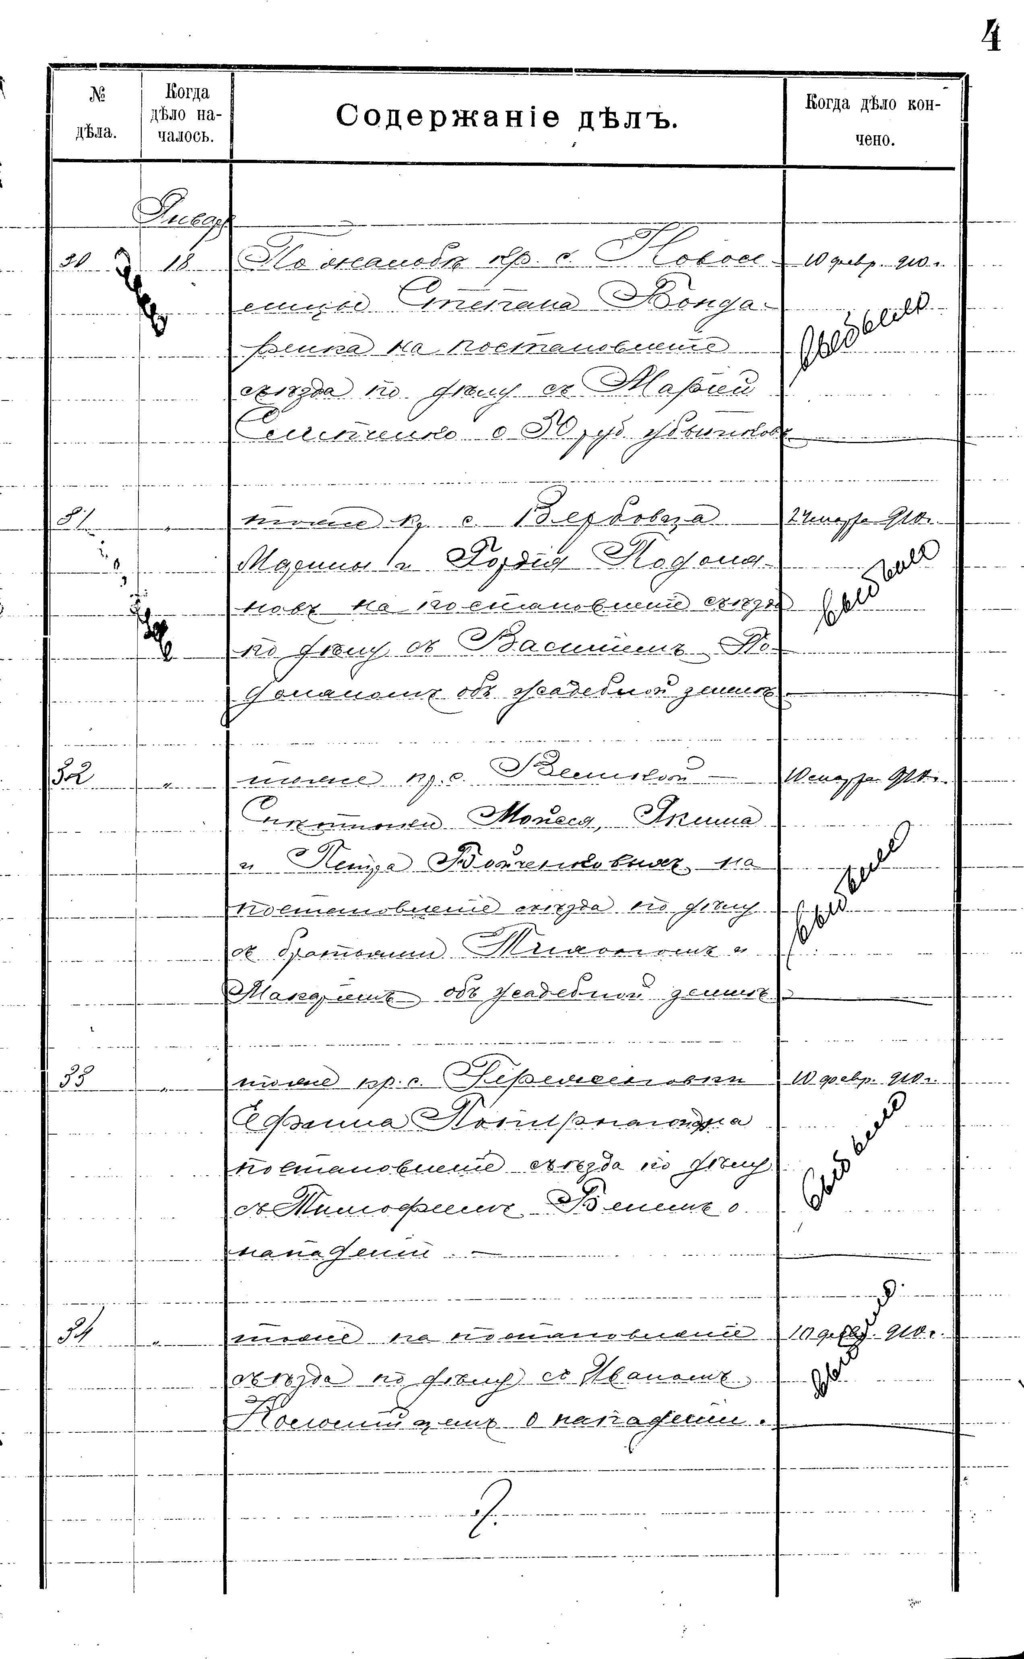 4
№ дѣла.
Когда дѣло началось.
Содержаніе дѣлъ.
Когда дѣло кончено.
Январ
30 18 По жалобѣ кр. с. Новосе- 10 февр. 910 г.
лицы Степана Бонда-
ренка на постановленіе выбыло
съѣзда по дѣлу съ Маріей
о 50 руб убытковъ
31 " тоже кр с. Вербовца 24 марта 910 г.
Марины и Гордія Подоля-
новъ на постановленіе съѣзда выбыло
по дѣлу съ Василіемъ По-
доляномъ объ усадебной землѣ
32 " тоже кр. с. Великой 10 марта 910 г.
Мойсея, Якима
и Петра на
постановленіе съѣзда по дѣлу выбыло
съ братьями Тихономъ и
Макаріемъ объ усадебной землѣ
33 " тоже кр. с. 10 февр. 910 г.
Ефима на
постановленіе съѣзда по дѣлу выбыло
съ Тимофеемъ о
нападеніи —
34 " тоже на постановленіе 10 февр. 910 г.
съѣзда по дѣлу съ Иваномъ выбыло
Коломійцемъ о нападеніи.